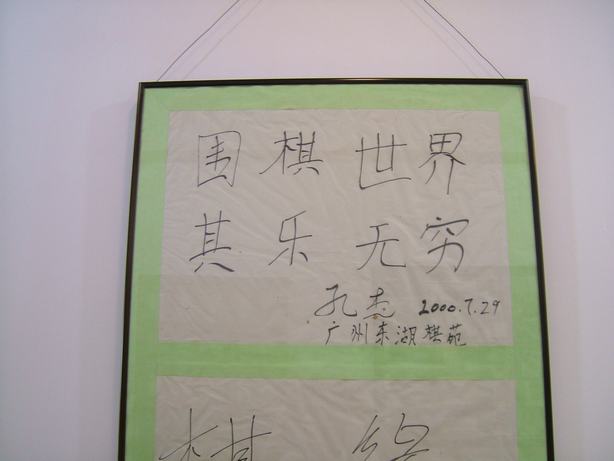 围棋世界
其乐无穷
孔杰 2000.7.29
广州东湖棋苑
棋